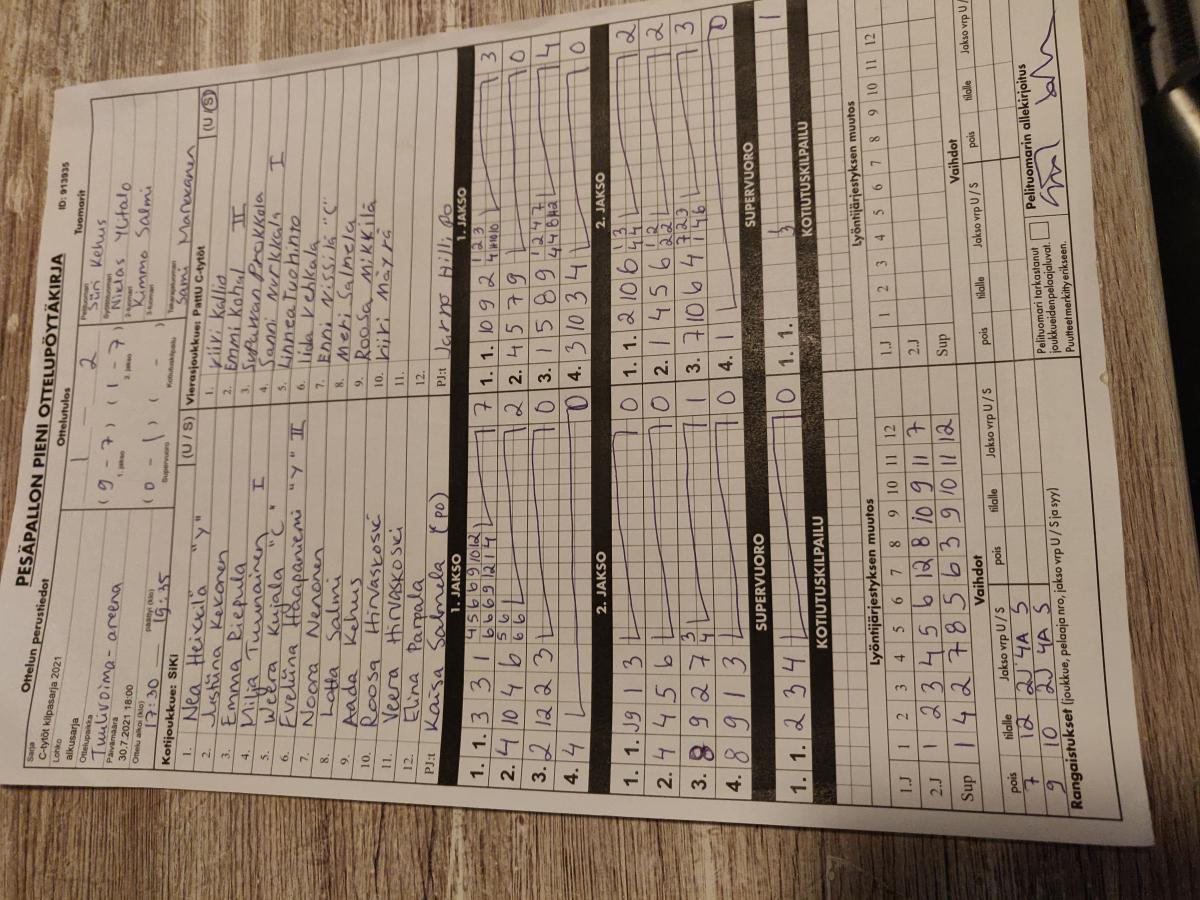 PESÄPALLON PIENI OTTELUPÖYTÄKIRJA
ID: 913935
Ottelun perustiedot
Ottelutulos
Tuomarit
Sarja
C-tytöt kilpasarja 2021
Lohko
alkusarja
Ottelupaikka
Tuulivoima-areena
Päivämäärä
30.7.2021 18:00
Ottelu alkoi (klo)
17:30
päättyi (klo)
19:35
1 — 2
(9 - 7) (1 - 7)
1. jakso
2. jakso
(0 - 1) ( - )
Supervuoro
Kotiutuskilpailu
Pelituomari
Siin Kehus
Syöttötuomari
Niklas Ylitalo
2-tuomari
Kimmo Salmi
3-tuomari
Takarajatuomari
Sami Manakanen
Kotijoukkue: SiKi
(U / S)
1. Nea Heikkilä "Y"
2. Justiina Kekonen
3. Emma Riepula
4. Milja Tuunainen I
5. Weera Kujala "C"
6. Eveliina Haapaniemi "Y" II
7. Noora Nenonen
8. Lotta Salmi
9. Aada Kehus
10. Roosa Hirvaskoski
11. Veera Hirvaskoski
12. Elina Parpala
PJ:t Kaisa Salmela (PO)
Vierasjoukkue: PattU C-tytöt
(U / S)
1. Viivi Kallio
2. Emmi Kohal II
3. Susanna Prokkola
4. Sanni Nurkkala
5. Linnea Tuohinto I
6. Iida Vehkala
7. Enni Nissilä "C"
8. Meri Salmela
9. Roosa Mikkilä
10. Viivi Mäyrä
11.
12.
PJ:t Jarno Hilli PO
1. JAKSO
1. 1. 3 3 1 7
2. 4 10 4 6 2
3. 2 12 2 3 0
4. 4 0
1. JAKSO
1. 1. 10 9 2 3
2. 4 5 7 9 0
3. 1 5 8 9 4
4. 3 10 3 4 0
2. JAKSO
2. 4 4 5 6 0
3. 8 9 2 7 1
4. 8 9 1 3 0
2. JAKSO
1. 1. 2 10 6 2
2. 1 4 5 6 2
3. 7 10 6 4 3
4. 1 0
SUPERVUORO
1. 1. 2 3 4 0
SUPERVUORO
1. 1. 1
KOTIUTUSKILPAILU
KOTIUTUSKILPAILU
Lyöntijärjestyksen muutos
1 2 3 4 5 6 7 8 9 10 11 12
1.J
2.J 1 2 3 4 5 6 12 8 10 9 11 7
Sup 1 4 2 7 8 5 6 3 9 10 11 12
Lyöntijärjestyksen muutos
1 2 3 4 5 6 7 8 9 10 11 12
1.J
2.J
Sup
Vaihdot
pois tilalle Jakso vrp U / S pois tilalle Jakso vrp U / S
7 12 2J 4A S
9 10 2J 4A S
Vaihdot
pois tilalle Jakso vrp U / S pois tilalle Jakso vrp U /
Rangaistukset (joukkue, pelaaja nro, jakso vrp U / S ja syy)
Pelituomari tarkastanut
joukkueiden pelaajaluvat.
Puutteet merkitty erikseen.
Pelituomarin allekirjoitus